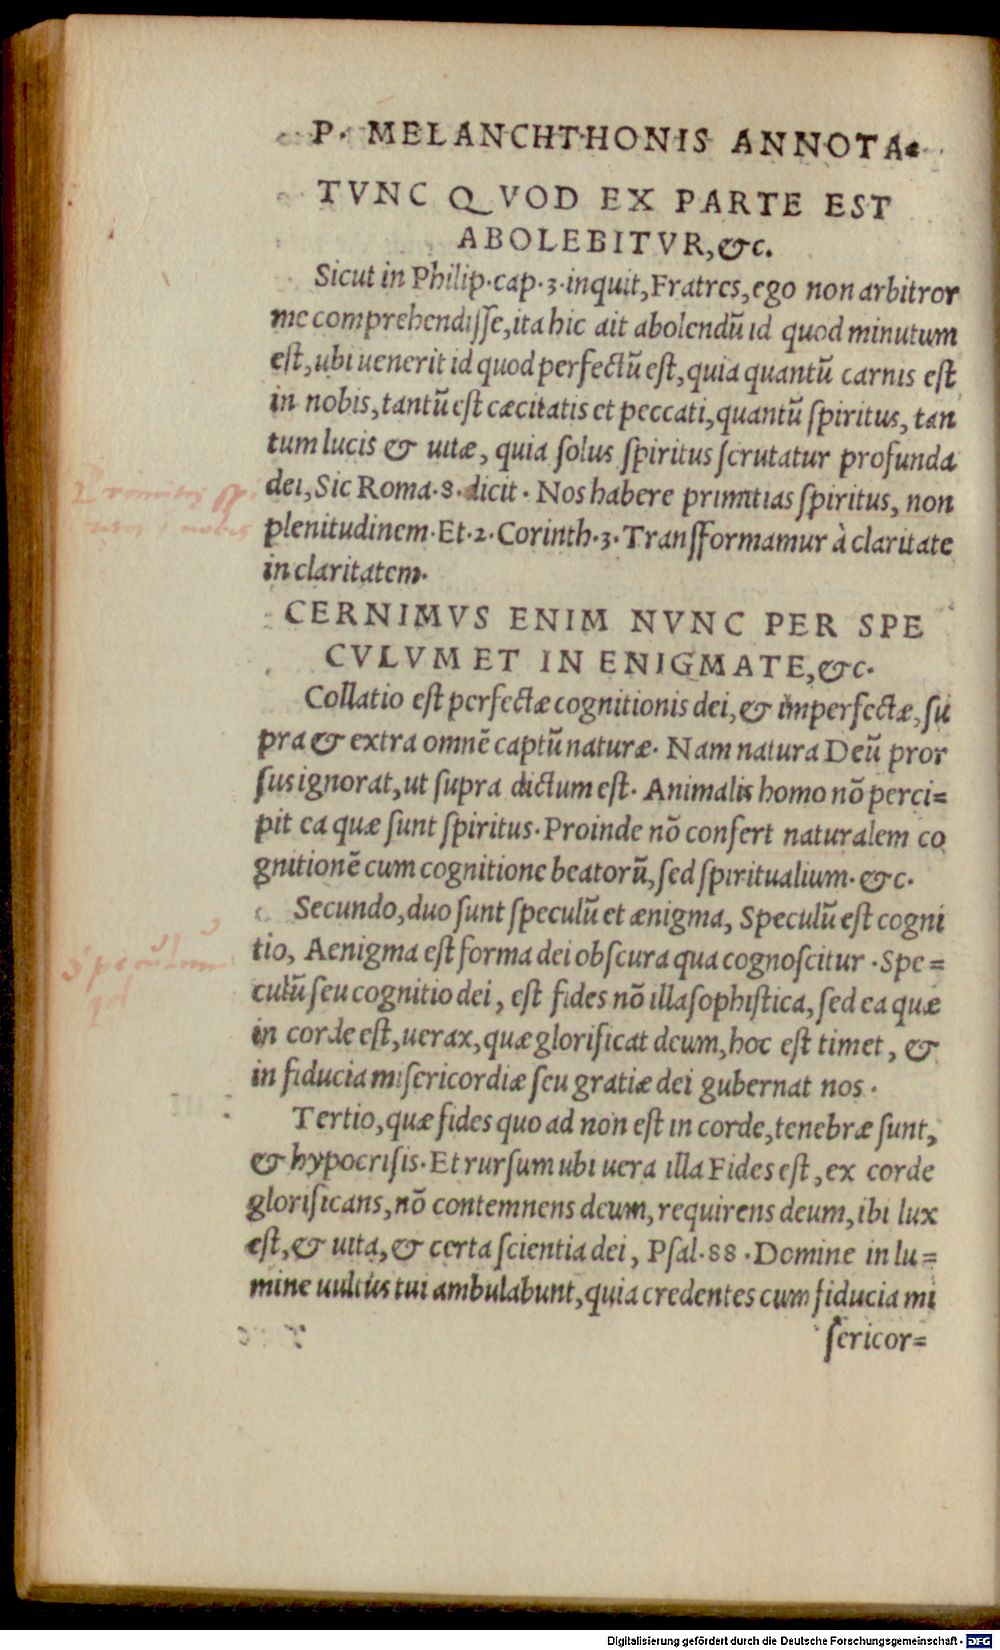 P. MELANCHTHONIS ANNOTA=
TVNC QVOD EX PARTE EST
ABOLEBITVR, &c.
Sicut in Philip. cap. 3. inquit, Fratres, ego non arbitror
me comprehendisse, ita hic ait abolendū id quod minutum
est, ubi uenerit id quod perfectū est, quia quantū carnis est
in nobis, tantū est cæcitatis et peccati, quantū spiritus, tan
tum lucis & uitæ, quia solus spiritus scrutatur profunda
dei, Sic Roma. 8. dicit. Nos habere primitias spiritus, non
plenitudinem. Et. 2. Corinth. 3. Transformamur à claritate
in claritatem.
CERNIMVS ENIM NVNC PER SPE
CVLVM ET IN ENIGMATE, &c.
Collatio est perfectæ cognitionis dei, & imperfectæ, su
pra & extra omnē captū naturæ. Nam natura Deū pror
sus ignorat, ut supra dictum est. Animalis homo nō perci=
pit ea quæ sunt spiritus. Proinde nō confert naturalem co
gnitionē cum cognitione beatorū, sed spiritualium. &c.
Secundo, duo sunt speculū et ænigma, Speculū est cogni
tio, Aenigma est forma dei obscura qua cognoscitur. Spe=
culū seu cognitio dei, est fides nō illa sophistica, sed ea quæ
in corde est, uerax, quæ glorificat deum, hoc est timet, &
in fiducia misericordiæ seu gratiæ dei gubernat nos.
Tertio, quæ fides quo ad non est in corde, tenebræ sunt,
& hypocrisis. Et rursum ubi uera illa Fides est, ex corde
glorificans, nō contemnens deum, requirens deum, ibi lux
est, & uita, & certa scientia dei, Psal. 88. Domine in lu=
mine uultus tui ambulabunt, quia credentes cum fiducia mi
sericor=
Speculum
Digitalisierung gefördert durch die Deutsche Forschungsgemeinschaft - DFG